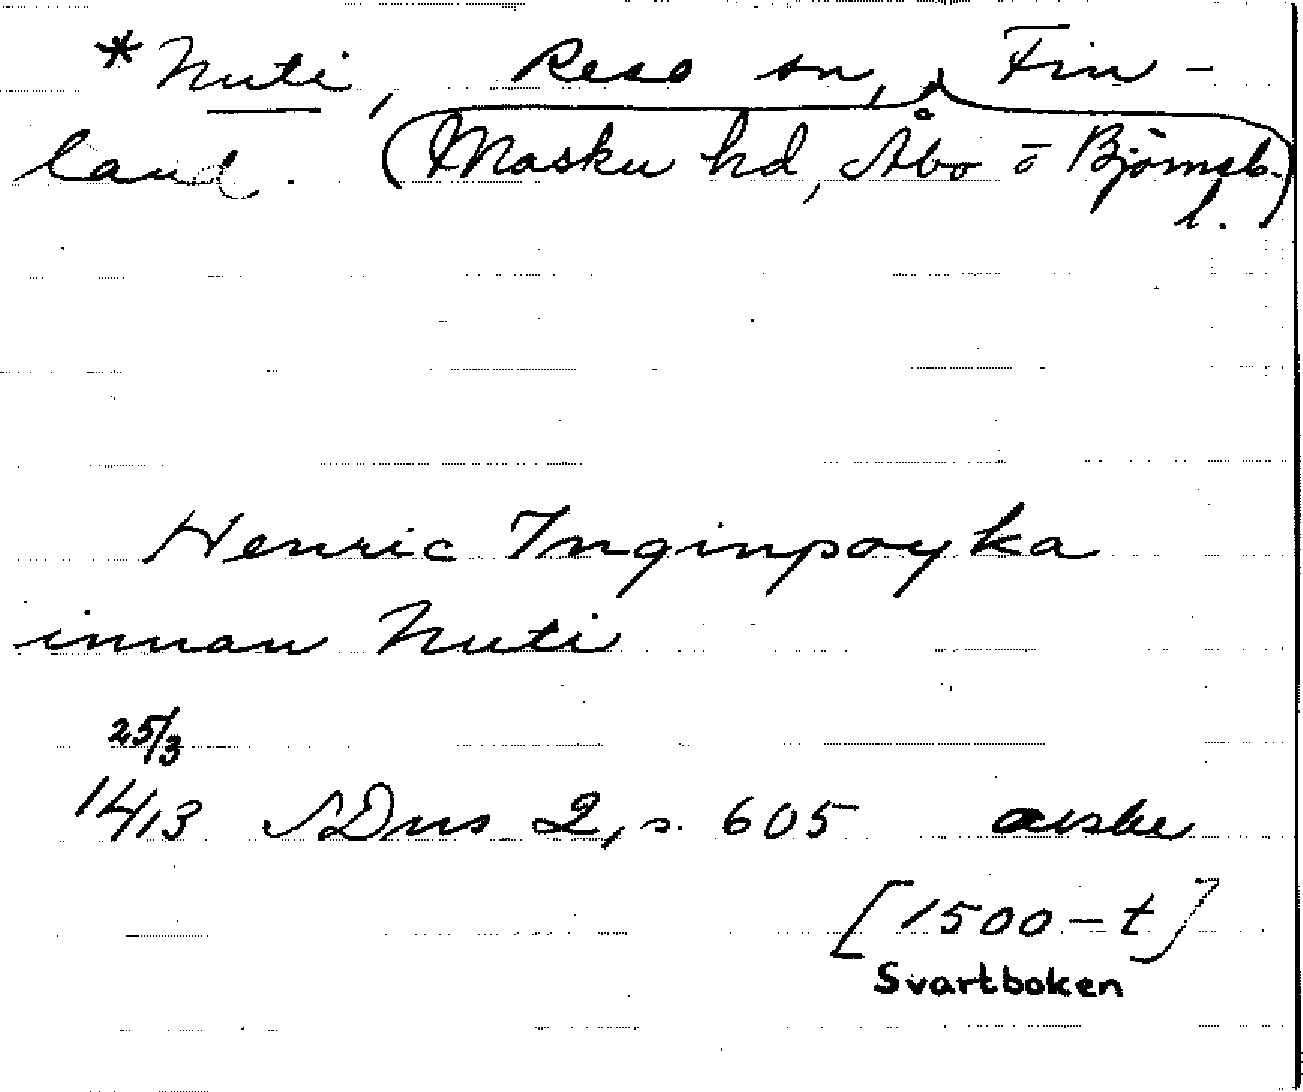 *Nuti, Reso sn, Fin-
land. (Masku hd, Åbo o Björneb.
l.)
Henric Inginpoyka
innan Nuti
25/3
1413 SDns 2, s. 605 avskr
[1500-t]
Svartboken